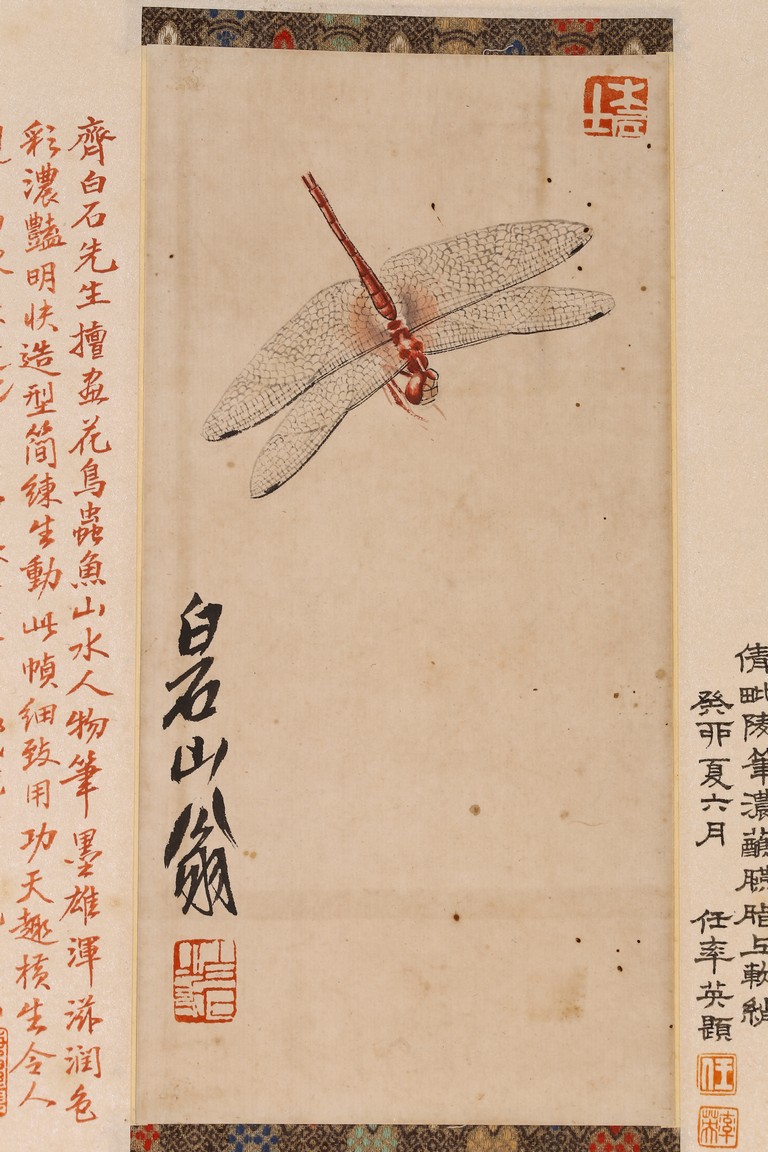 倩毗陵筆濃蘸胭脂上軟綃
癸卯夏六月 任率英題
白石山翁
齊白石先生擅畫花鳥蟲魚山水人物筆墨雄渾滋润色
彩濃豔明快造型简練生動此幀细致用功天趣橫生令人